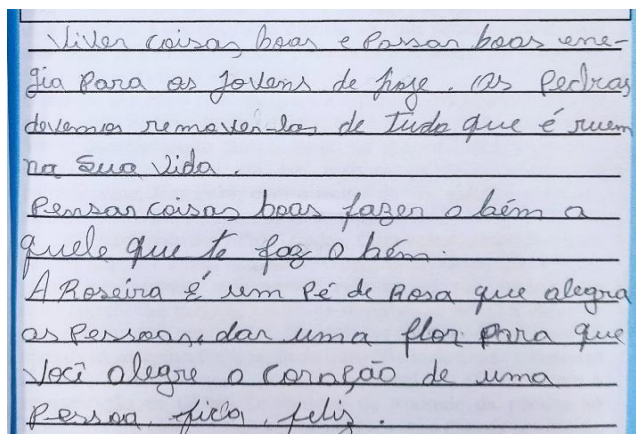 Viver coisas boas e Passar boas ene-
gia Para os jovens de hoje. as Pedras
devemos remover-las de tudo que é ruem
na sua vida.
Pensar coisas boas fazer o bém a
quele que te faz o bém.
A Roseira é um Pé de Rosa que alegra
as Pessoas, dar uma flor para que
você alegre o coração de uma
Pessoa, fica, feliz.